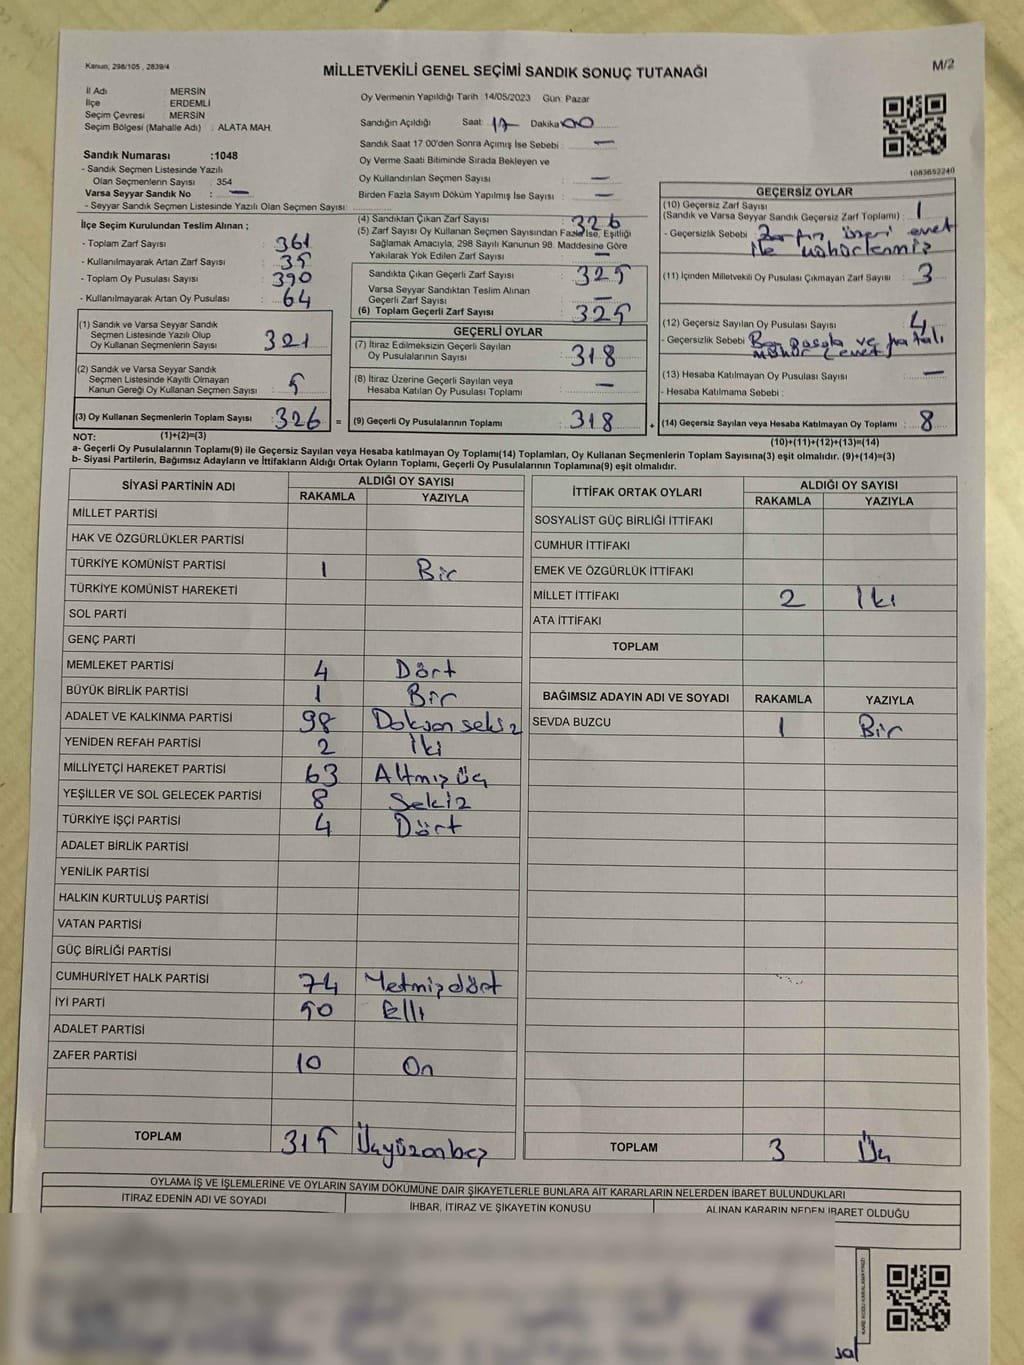 Kanun; 298/105 , 2839/4
MİLLETVEKİLİ GENEL SEÇİMİ SANDIK SONUÇ TUTANAĞI
M/2
İl Adı : MERSİN
İlçe : ERDEMLİ
Seçim Çevresi : MERSİN
Seçim Bölgesi (Mahalle Adı) : ALATA MAH.
Oy Vermenin Yapıldığı Tarih :14/05/2023 Gün: Pazar
Sandığın Açıldığı Saat: 17 Dakika: 00
Sandık Saat 17 00'den Sonra Açımış İse Sebebi : —
Oy Verme Saati Bitiminde Sırada Bekleyen ve
Oy Kullandırılan Seçmen Sayısı : —
Birden Fazla Sayım Döküm Yapılmış İse Sayısı : —
Sandık Numarası :1048
- Sandık Seçmen Listesinde Yazılı
Olan Seçmenlerin Sayısı : 354
Varsa Seyyar Sandık No : —
- Seyyar Sandık Seçmen Listesinde Yazılı Olan Seçmen Sayısı:
1083652240
İlçe Seçim Kurulundan Teslim Alınan ;
- Toplam Zarf Sayısı : 361
- Kullanılmayarak Artan Zarf Sayısı : 35
- Toplam Oy Pusulası Sayısı : 390
- Kullanılmayarak Artan Oy Pusulası : 64
(1) Sandık ve Varsa Seyyar Sandık
Seçmen Listesinde Yazılı Olup
Oy Kullanan Seçmenlerin Sayısı : 321
(2) Sandık ve Varsa Seyyar Sandık
Seçmen Listesinde Kayıtlı Olmayan
Kanun Gereği Oy Kullanan Seçmen Sayısı : 5
(3) Oy Kullanan Seçmenlerin Toplam Sayısı : 326 =
(1)+(2)=(3)
(4) Sandıktan Çıkan Zarf Sayısı : 326
(5) Zarf Sayısı Oy Kullanan Seçmen Sayısından Fazla İse, Eşitliği
Sağlamak Amacıyla, 298 Sayılı Kanunun 98. Maddesine Göre
Yakılarak Yok Edilen Zarf Sayısı : —
Sandıkta Çıkan Geçerli Zarf Sayısı : 325
Varsa Seyyar Sandıktan Teslim Alınan
Geçerli Zarf Sayısı : —
(6) Toplam Geçerli Zarf Sayısı : 325
GEÇERLİ OYLAR
(7) İtiraz Edilmeksizin Geçerli Sayılan
Oy Pusulalarının Sayısı : 318
(8) İtiraz Üzerine Geçerli Sayılan veya
Hesaba Katılan Oy Pusulası Toplamı : —
(9) Geçerli Oy Pusulalarının Toplamı : 318 +
GEÇERSİZ OYLAR
(10) Geçersiz Zarf Sayısı
(Sandık ve Varsa Seyyar Sandık Geçersiz Zarf Toplamı) : 1
- Geçersizlik Sebebi : Zarfın üzeri evet
ile mühürlenmiş
(11) İçinden Milletvekili Oy Pusulası Çıkmayan Zarf Sayısı : 3
(12) Geçersiz Sayılan Oy Pusulası Sayısı : 4
- Geçersizlik Sebebi : Boş pusula ve hatalı
mühür (evet)
(13) Hesaba Katılmayan Oy Pusulası Sayısı : —
- Hesaba Katılmama Sebebi :
(14) Geçersiz Sayılan veya Hesaba Katılmayan Oy Toplamı : 8
(10)+(11)+(12)+(13)=(14)
NOT:
a- Geçerli Oy Pusulalarının Toplamı(9) ile Geçersiz Sayılan veya Hesaba katılmayan Oy Toplamı(14) Toplamları, Oy Kullanan Seçmenlerin Toplam Sayısına(3) eşit olmalıdır. (9)+(14)=(3)
b- Siyasi Partilerin, Bağımsız Adayların ve İttifakların Aldığı Ortak Oyların Toplamı, Geçerli Oy Pusulalarının Toplamına(9) eşit olmalıdır.
SİYASİ PARTİNİN ADI ALDIĞI OY SAYISI
RAKAMLA YAZIYLA
MİLLET PARTİSİ
HAK VE ÖZGÜRLÜKLER PARTİSİ
TÜRKİYE KOMÜNİST PARTİSİ 1 Bir
TÜRKİYE KOMÜNİST HAREKETİ
SOL PARTİ
GENÇ PARTİ
MEMLEKET PARTİSİ 4 Dört
BÜYÜK BİRLİK PARTİSİ 1 Bir
ADALET VE KALKINMA PARTİSİ 98 Doksan sekiz
YENİDEN REFAH PARTİSİ 2 İki
MİLLİYETÇİ HAREKET PARTİSİ 63 Altmış üç
YEŞİLLER VE SOL GELECEK PARTİSİ 8 Sekiz
TÜRKİYE İŞÇİ PARTİSİ 4 Dört
ADALET BİRLİK PARTİSİ
YENİLİK PARTİSİ
HALKIN KURTULUŞ PARTİSİ
VATAN PARTİSİ
GÜÇ BİRLİĞİ PARTİSİ
CUMHURİYET HALK PARTİSİ 74 Yetmiş dört
İYİ PARTİ 50 Elli
ADALET PARTİSİ
ZAFER PARTİSİ 10 On
TOPLAM 315 Üçyüzonbeş
İTTİFAK ORTAK OYLARI ALDIĞI OY SAYISI
RAKAMLA YAZIYLA
SOSYALİST GÜÇ BİRLİĞİ İTTİFAKI
CUMHUR İTTİFAKI
EMEK VE ÖZGÜRLÜK İTTİFAKI
MİLLET İTTİFAKI 2 İki
ATA İTTİFAKI
TOPLAM
BAĞIMSIZ ADAYIN ADI VE SOYADI RAKAMLA YAZIYLA
SEVDA BUZCU 1 Bir
TOPLAM 3 Üç
OYLAMA İŞ VE İŞLEMLERİNE VE OYLARIN SAYIM DÖKÜMÜNE DAİR ŞİKAYETLERLE BUNLARA AİT KARARLARIN NELERDEN İBARET BULUNDUKLARI
İTİRAZ EDENİN ADI VE SOYADI İHBAR, İTİRAZ VE ŞİKAYETİN KONUSU ALINAN KARARIN NEDEN İBARET OLDUĞU
KARE KODU KARALAMAYINIZ!